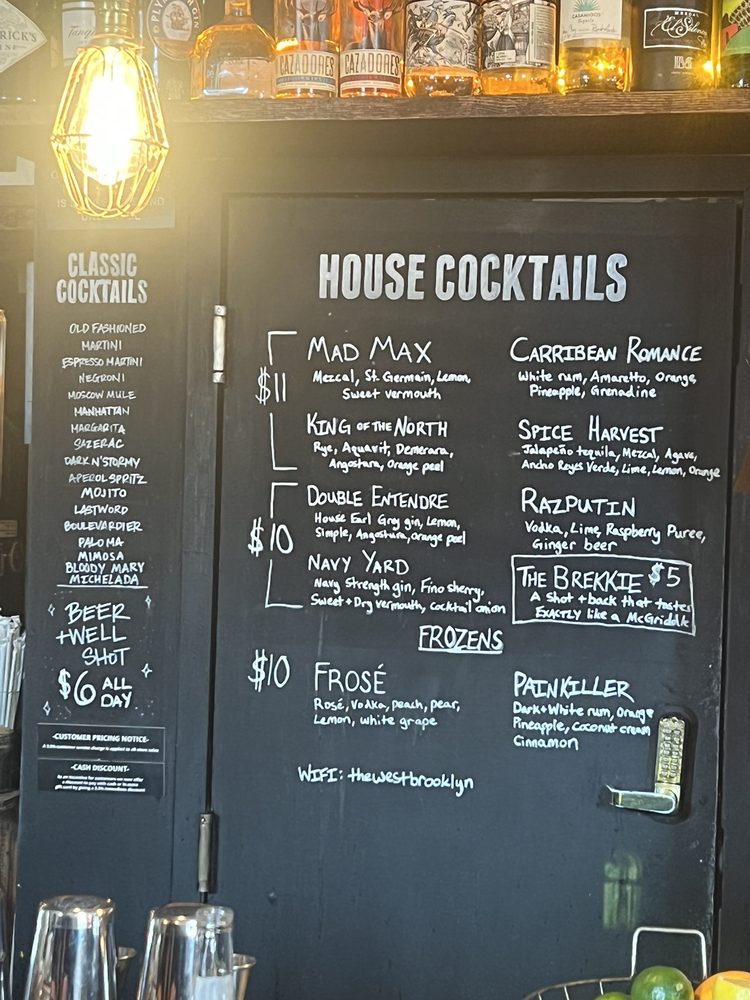 CAZADORES
CAZADORES
CLASSIC
COCKTAILS
OLD FASHIONED
MARTINI
ESPRESSO MARTINI
NEGRONI
MOSCOW MULE
MANHATTAN
MARGARITA
SAZERAC
DARK N'STORMY
APEROL SPRITZ
MOJITO
LASTWORD
BOULEVARDIER
PALOMA
MIMOSA
BLOODY MARY
MICHELADA
BEER
+WELL
SHOT
$6 ALL
DAY
-CUSTOMER PRICING NOTICE-
-CASH DISCOUNT-
HOUSE COCKTAILS
$11
MAD MAX
Mezcal, St. Germain, Lemon,
Sweet vermouth
KING OF THE NORTH
Rye, Aquavit, Demerara,
Angostura, Orange peel
$10
DOUBLE ENTENDRE
House Earl Grey gin, Lemon,
Simple, Angostura, orange peel
NAVY YARD
Navy Strength gin, Fino sherry,
Sweet + Dry vermouth, cocktail onion
CARRIBEAN ROMANCE
White rum, Amaretto, Orange,
Pineapple, Grenadine
SPICE HARVEST
Jalapeño tequila, Mezcal, Agave,
Ancho Reyes Verde, Lime, Lemon, Orange
RAZPUTIN
Vodka, Lime, Raspberry Puree,
Ginger beer
THE BREKKIE $5
A Shot + back that tastes
EXACTLY like a McGriddle
FROZENS
$10
FROSÉ
Rosé, Vodka, peach, pear,
Lemon, white grape
PAINKILLER
Dark + White rum, Orange
Pineapple, Coconut cream
Cinnamon
WIFI: thewestbrooklyn